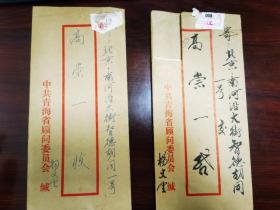 北京·南河沿大街智德胡同一号
高崇一收
中共青海省顾问委员会 缄
寄 北京·南河沿大街智德胡同
一号 交
高崇一 启
中共青海省顾问委员会 缄